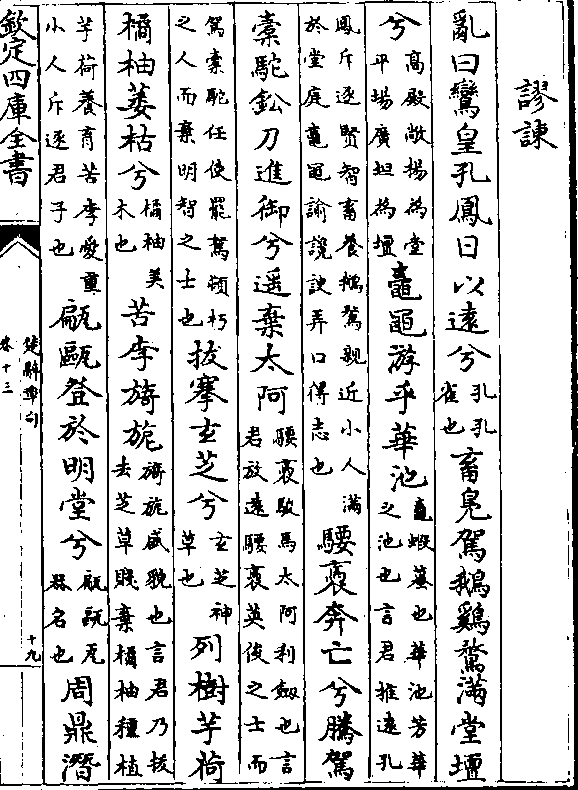 謬諫
亂曰鸞皇孔鳳日以遠兮孔孔雀也畜鳧駕鵝雞鶩滿堂壇
兮高殿敞揚為堂平場廣坦為壇鼃黽游乎華池鼃蝦蟇也華池芳華之池也言君推遠孔
鳳斥逐賢智畜養鵝鶩親近小人滿於堂庭鼃黽諭讒諛弄口得志也騕褭奔亡兮騰駕
橐駝鈆刀進御兮遥棄太阿騕褭駿馬太阿利劒也言君放遠騕褭英俊之士而
駕橐駝任使罷駑頓朽之人而棄明智之士也拔搴玄芝兮玄芝神草也列樹芋荷
橘柚萎枯兮橘柚美木也苦李旖旎旖旎盛貌也言君乃拔去芝草賤棄橘柚種植
芋荷養育苦李愛重小人斥逐君子也甂甌登於明堂兮甂甌瓦器名也周鼎潛
欽定四庫全書
楚辭章句
卷十三
十九